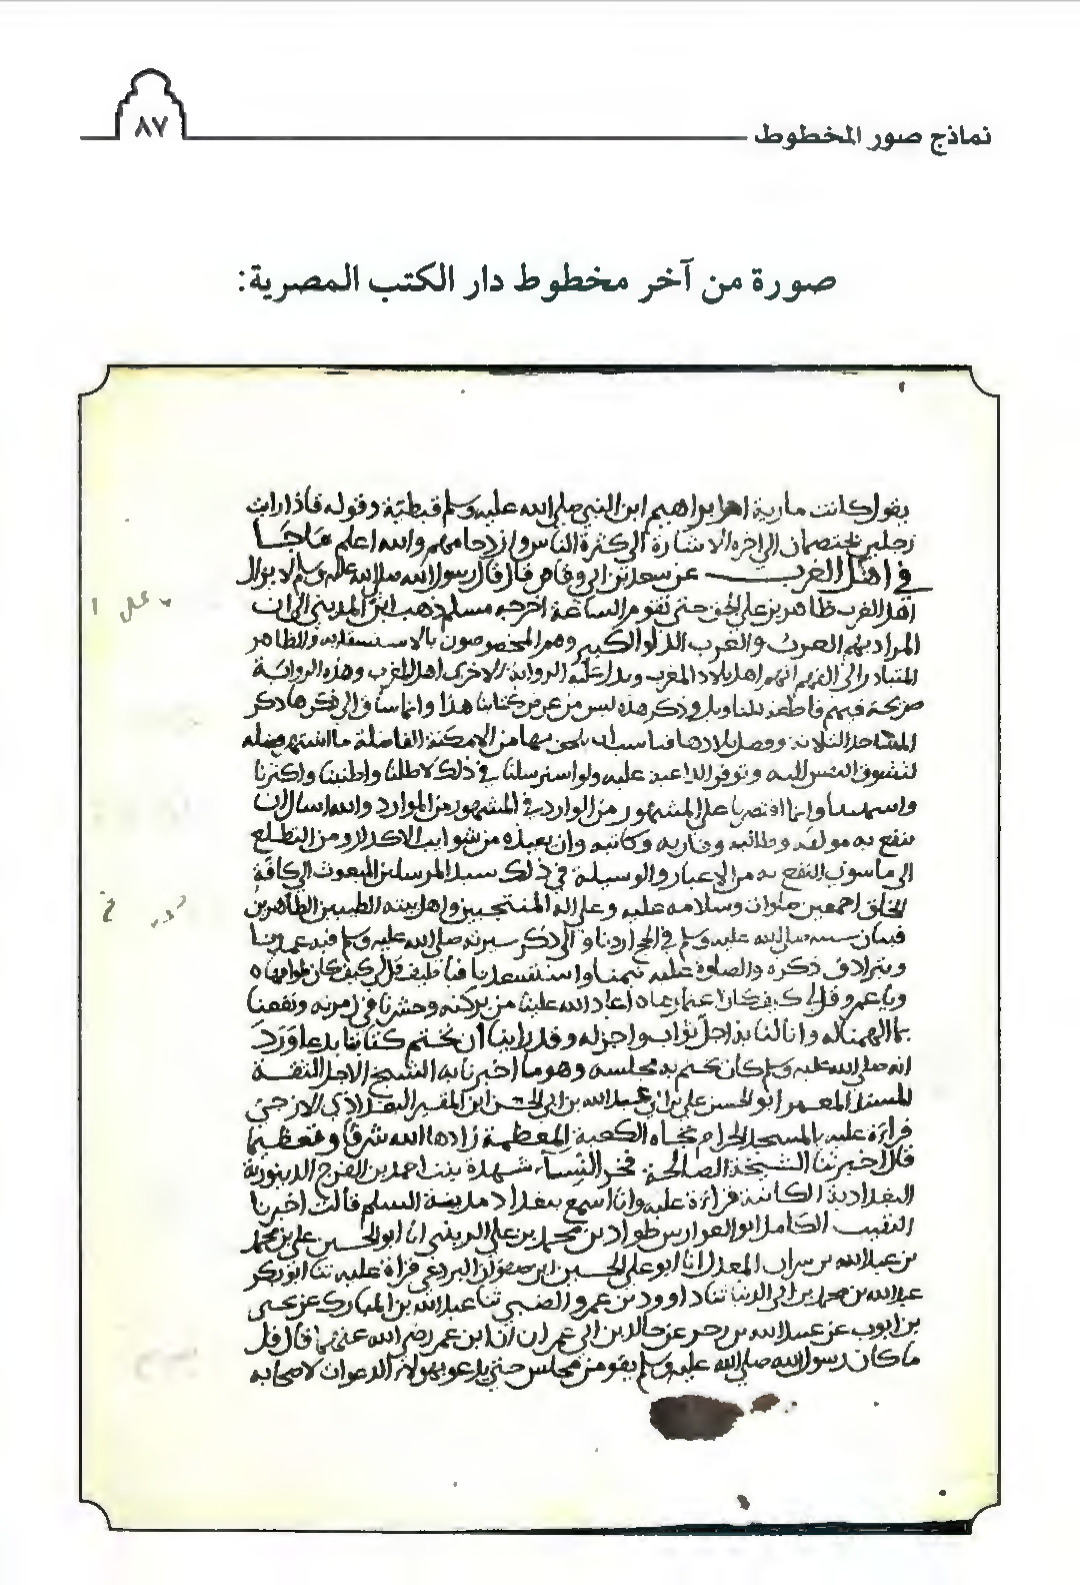 نماذج صور المخطوط
٨٧
صورة من آخر مخطوط دار الكتب المصرية:
يقول كانت مارية ام ابراهيم ابن النبي صلى الله عليه وسلم قبطية وقوله فاذا رايت
رجلين يختصمان الى اخره الاشارة الى كثرة الناس وازدحامهم والله اعلم ما جا
في اهل الغرب عن سعد بن ابي وقاص قال قال رسول الله صلى الله عليه وسلم لا يزال
اهل الغرب ظاهرين على الحق حتى تقوم الساعة اخرجه مسلم ذهب ابن المديني الى ان
المراد بهم العرب والغرب الدلو الكبير وهم المخصوصون بالاستسقا به والظاهر
المتبادر الى الفهم انهم اهل بلاد المغرب ويدل عليه الرواية الاخرى اهل المغرب وهذه الرواية
صريحة فيهم قاطعة للتاويل وذكر هذه ليس من غرض كتابنا هذا وانما ساق الى ذكرها ذكر
المساجد الثلاثة وفضل بلادها فناسب ان يلحق بها من الامكنة الفاضلة ما اشتهر فضله
لتتشوق النفس اليه وتتوفر الداعية عليه ولو استرسلنا في ذلك لاطلنا واطنبنا واكثرنا
واسهبنا وانما اقتصرنا على المشهور من الوارد في المشهور من الموارد والله اسال ان
ينفع به مولفه وطالبه وقاريه وكاتبه وان يعيذه من شوايب الاكدار ومن التطلع
الى ما سوى النفع به من الاعبار والوسيلة في ذلك سيد المرسلين المبعوث الى كافة
الخلق اجمعين صلوات وسلامه عليه وعلى اله المنتجبين واهل بيته الطيبين الطاهرين
صلى الله عليه وسلم في الى ذكر سيرته صلى الله عليه وسلم
ذكره والصلوة عليه تيمنا
اعاد الله علينا من بركته وحشرنا في زمرته ونفعنا
بما الهمنا له وانالنا به اجل ثواب واجزله وقد راينا ان نختم كتابنا بدعا ورد
انه صلى الله عليه وسلم كان يختم به مجلسه وهو ما اخبرنا به الشيخ الاجل الثقة
المسند المعمر ابو الحسن علي بن ابي عبد الله بن ابي الحسن ابن المقير البغداذي الازجي
قراءة عليه بالمسجد الحرام تجاه الكعبة المعظمة زادها الله شرفا وتعظيما
قال اخبرتنا الشيخة الصالحة فخر النساء شهدة بنت احمد بن الفرج الدينورية
البغدادية الكاتبة قراءة عليه وانا اسمع ببغداد مدينة السلم قالت اخبرنا
النقيب الكامل ابو الفوارس طراد بن محمد بن علي الزينبي انا ابو الحسين علي بن محمد
بن عبد الله بن بشران المعدل انا ابو علي الحسين ابن صفوان البردعي قراة عليه ثنا ابو بكر
عبد الله بن محمد بن ابي الدنيا ثنا داوود بن عمرو الضبي ثنا عبد الله بن المبارك عن يحيى
بن ايوب عن عبيد الله بن زحر عن خالد بن ابي عمران ان ابن عمر رضي الله عنهما قال قل
ما كان رسول الله صلى الله عليه وسلم يقوم من مجلس حتى يدعو بهولاء الدعوات لاصحابه